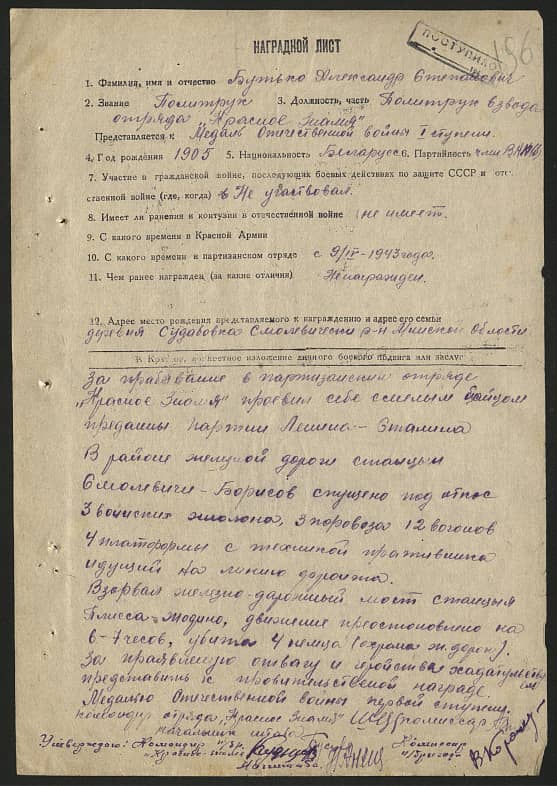 ПОСТУПИЛО
196
НАГРАДНОЙ ЛИСТ
1. Фамилия, имя и отчество Бутько Александр Степанович
2. Звание Политрук 3. Должность, часть Политрук взвода
отряда "Красное Знамя"
Представляется к Медаль Отечественной войны I ступени.
4. Год рождения 1905 5. Национальность Беларусс 6. Партийность член ВКП(б)
7. Участие в гражданской войне, последующих боевых действиях по защите СССР и отече-
ственной войне (где, когда) Не участвовал.
8. Имеет ли ранения и контузии в отечественной войне не имеет.
9. С какого времени в Красной Армии
10. С какого времени в партизанском отряде с 9/IV-1943 года.
11. Чем ранее награжден (за какие отличия) Ненагражден.
12. Адрес место рождения представляемого к награждению и адрес его семьи
Судабовка Смолевически р-н Минской области
конкретное изложение личного боевого подвига или заслуг
За прабывание в партизанский отряде
"Красное Знамя" проевил себе смелым байцом
преданы партии Ленина-Сталина
В районе железной дороги станцым
Смолевичи-Борисов спущено под откос
3 воинских эшалона, 3 поровоза 12 вогонов
4 платформы с техникой
идущий на линию
Взорвал железно-дарожный мост станцым
Плисса-Жодино, движение преостоновлено на
6-7 чесов, убито 4 немца (охрана ж. дорог).
За праявленую отвагу и геройства хадатайствуем
представить к провительственой награде
Медалью Отечественной войны первой ступени.
Командир отряда "Красное Знамя" комиссар
начальник штаба
Утверждаю: Командир п/бр. Комиссар
п/бригады